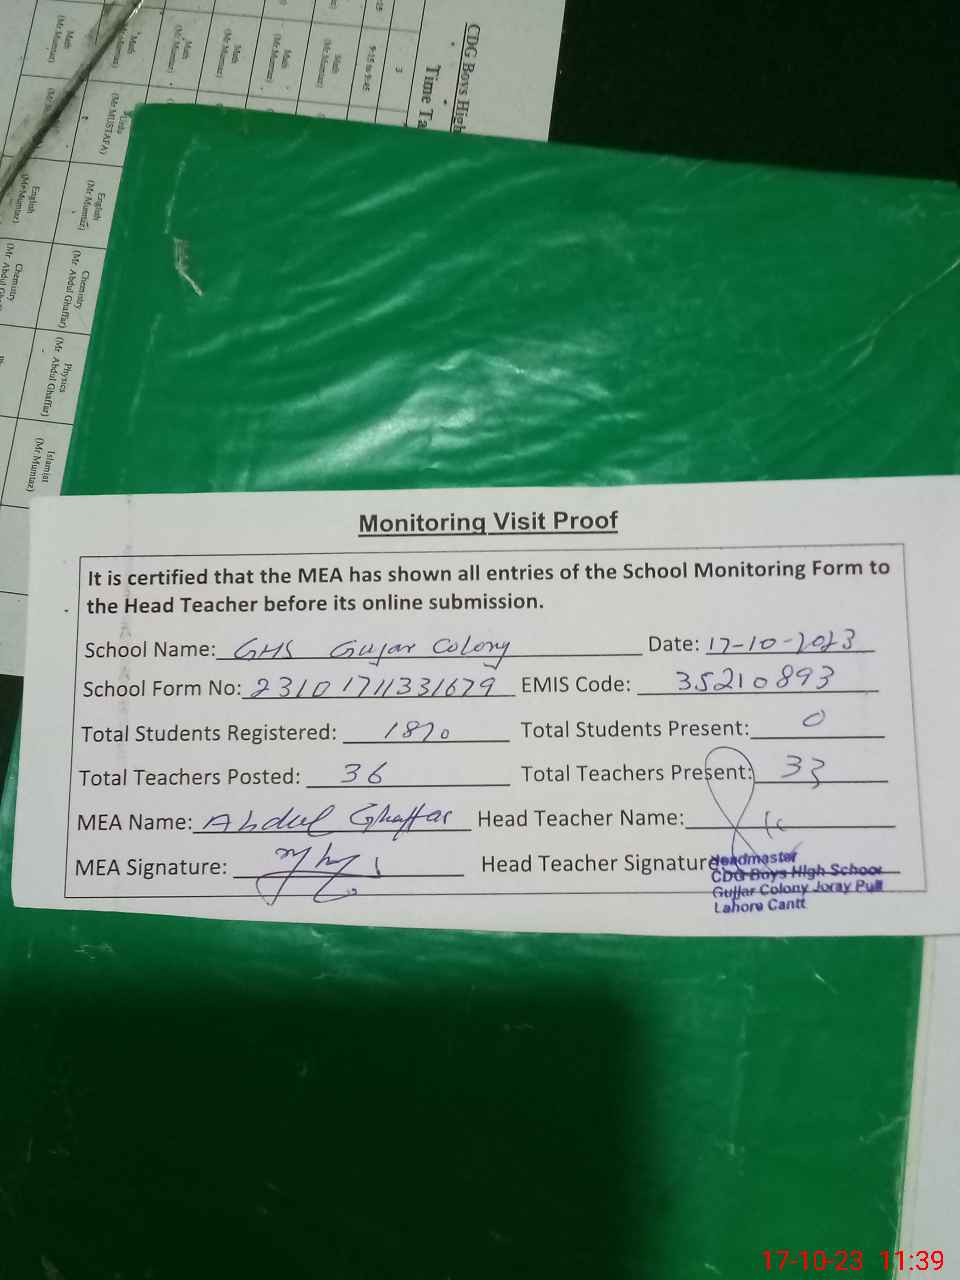 CDG Boys High
Time Ta
3
9-15 to 9-45
Math
(Mr Mumtaz)
Math
(Mr Mumtaz)
Math
(Mr Mumtaz)
Math
(Mr Mumtaz)
Math
Math
(Mr Mumtaz)
Urdu
(Mr MUSTAFA)
English
(Mr Mumtaz)
Chemistry
(Mr. Abdul Ghaffar)
Physics
(Mr. Abdul Ghaffar)
Islamiat
(Mr Mumtaz)
English
(Mr Mumtaz)
Chemistry
(Mr. Abdul
Monitoring Visit Proof
It is certified that the MEA has shown all entries of the School Monitoring Form to
the Head Teacher before its online submission.
School Name: GHS Gujar Colony Date: 17-10-2023
School Form No: 23101711331679 EMIS Code: 35210893
Total Students Registered: 1870 Total Students Present: 0
Total Teachers Posted: 36 Total Teachers Present: 33
MEA Name: Abdul Ghaffar Head Teacher Name:
MEA Signature: Head Teacher Signature
Headmaster
CDG Boys High School
Gujjar Colony Joray Pull
Lahore Cantt
17-10-23 11:39